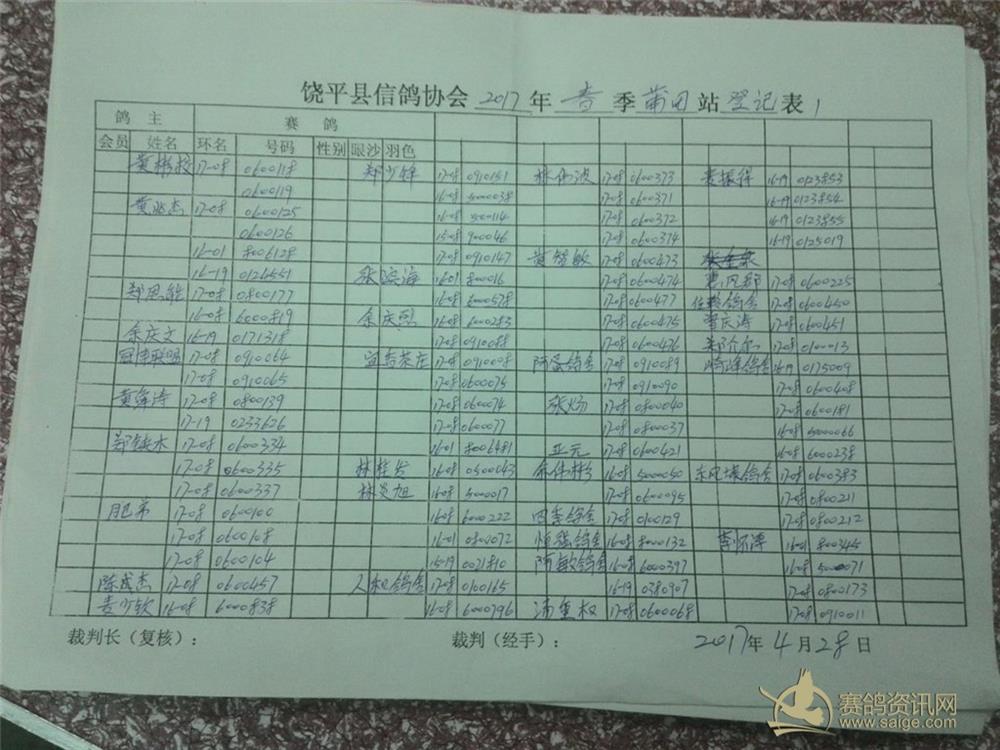 饶平县信鸽协会 2017 年 春 季 莆田 站 登记 表 1
鸽 主 赛 鸽
会员 姓名 环名 号码 性别 眼沙 羽色
17-08 0600118 郑少锋 17-08 0910151 林伟波 17-08 0600373 16-19 0123853
0600119 16-08 17-08 0600371 16-19 0123854
黄兆杰 17-08 0600125 16-08 17-08 0600372 16-19 0123855
0600126 15-08 900046 17-08 0600374 16-19 0125019
16-01 8006128 17-08 0910147 17-08 0600473
16-19 0126551 张滨海 16-01 800016 17-08 0600474 17-08 0600225
郑恩雄 17-08 0800177 16-08 6000578 17-08 0600477 17-08 0600450
16-08 6000819 余庆烈 16-08 6000283 17-08 0600475 曾庆涛 17-08 0600451
余庆文 16-19 0171318 17-08 0910088 17-08 0600476 17-08 0100013
冠伟联盟 17-08 0910064 宜鸟茶庄 17-08 0910098 17-08 0910089 崎峰鸽舍 16-19 0175009
17-08 0910065 17-08 0600075 17-08 0910090 17-08 0600408
17-08 0800139 17-08 0600074 张炀 17-08 0800040 17-08 0600181
17-19 0233626 17-08 0600077 17-08 0800037 16-08 5000066
17-08 0600334 16-01 8006481 亚元 17-08 0600421 16-08 6000238
17-08 0600335 林桂发 16-08 0500043 余伟彬 16-08 5000050 17-08 0600383
17-08 0600337 林炎旭 16-08 5000017 17-08 0600095 17-08 0800211
肥弟 17-08 0600100 16-08 6000222 四季鸽舍 17-08 0100129 17-08 0800212
17-08 0600108 16-01 0800072 16-08 8000132 李怀涛 16-01 800345
17-08 0600104 15-19 0021810 阿敏鸽舍 16-08 6000397 16-08 5000071
陈成杰 17-08 0600457 人和鸽舍 17-08 0100165 16-19 0380907 17-08 0800173
黄少钦 16-08 6000838 16-08 6000796 17-08 0600068 17-08 0910011
裁判长（复核）： 裁判（经手）： 2017 年 4 月 28 日
赛鸽资讯网
www.saige.com